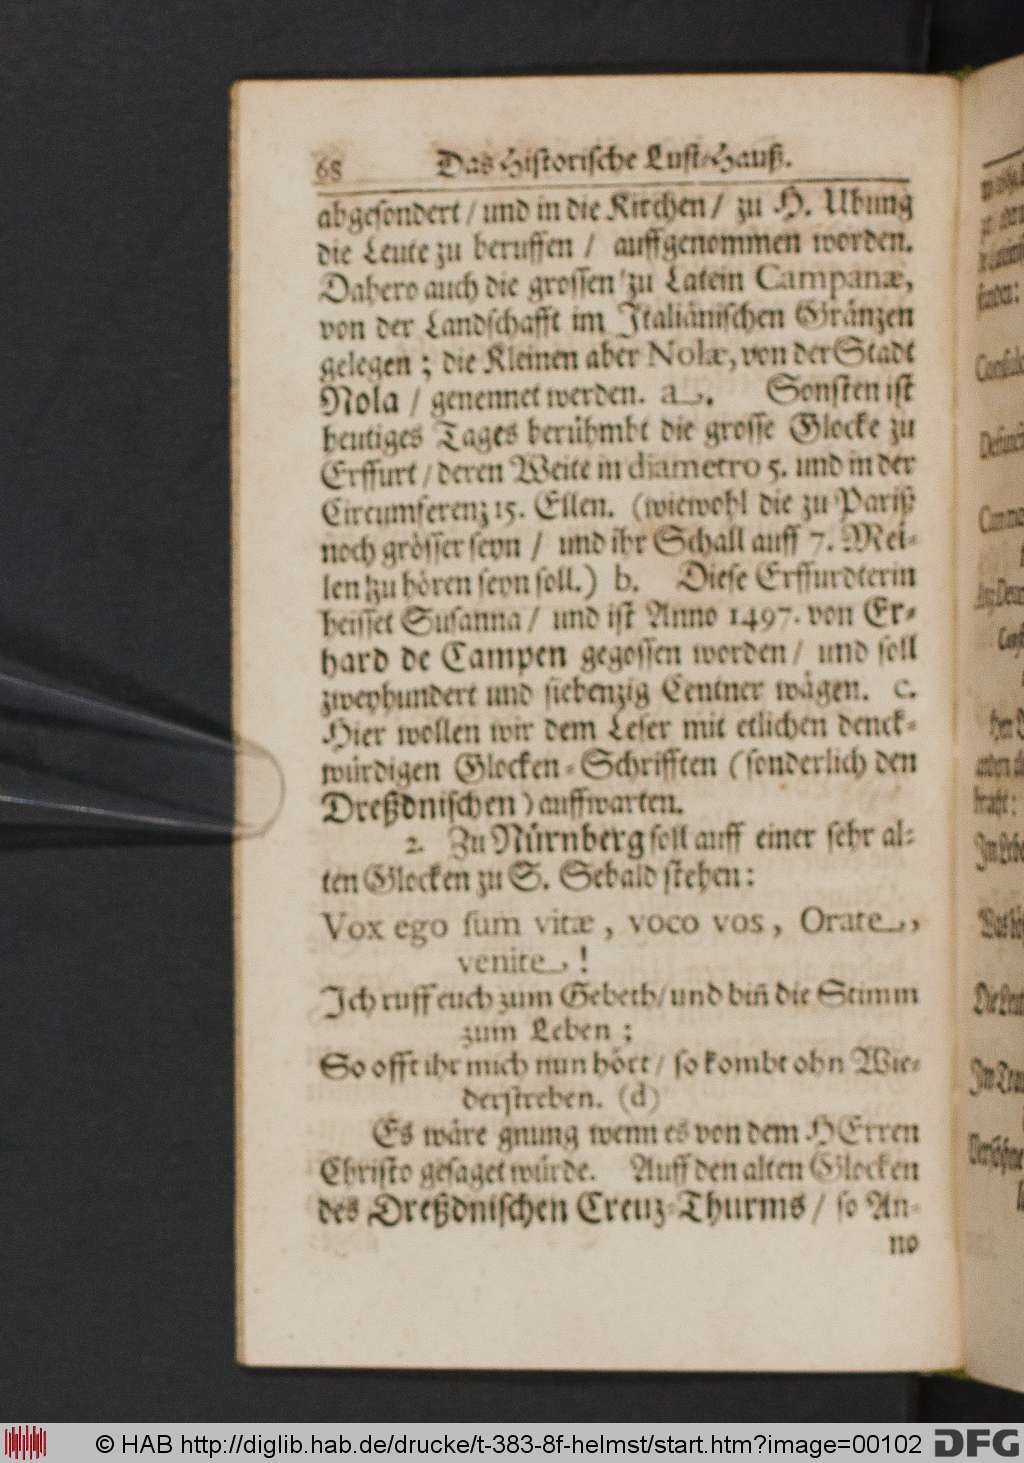 68 Das Historische Lust-Hauß.
abgesondert / und in die Kirchen / zu H. Ubung
die Leute zu beruffen / auffgenommen worden.
Dahero auch die grossen zu Latein Campanæ,
von der Landschafft im Italiänischen Gränzen
gelegen ; die Kleinen aber Nolæ, von der Stadt
Nola / genennet werden. a. Sonsten ist
heutiges Tages berühmbt die grosse Glocke zu
Erffurt / deren Weite in diametro 5. und in der
Circumferenz 15. Ellen. (wiewohl die zu Pariß
noch grösser seyn / und ihr Schall auff 7. Mei-
len zu hören seyn soll.) b. Diese Erffurdterin
heisset Susanna / und ist Anno 1497. von Er-
hard de Campen gegossen worden / und soll
zweyhundert und siebenzig Centner wägen. c.
Hier wollen wir dem Leser mit etlichen denck-
würdigen Glocken-Schrifften (sonderlich den
Dreßdnischen) auffwarten.
2. Zu Nürnberg soll auff einer sehr al-
ten Glocken zu S. Sebald stehen:
Vox ego sum vitæ, voco vos, Orate,
venite !
Ich ruff euch zum Gebeth / und biñ die Stimm
zum Leben ;
So offt ihr mich nun hört / so kombt ohn Wie-
derstreben. (d)
Es wäre gnung wenn es von dem HErren
Christo gesaget würde. Auff den alten Glocken
des Dreßdnischen Creuz-Thurms / so An-
no
© HAB http://diglib.hab.de/drucke/t-383-8f-helmst/start.htm?image=00102 DFG